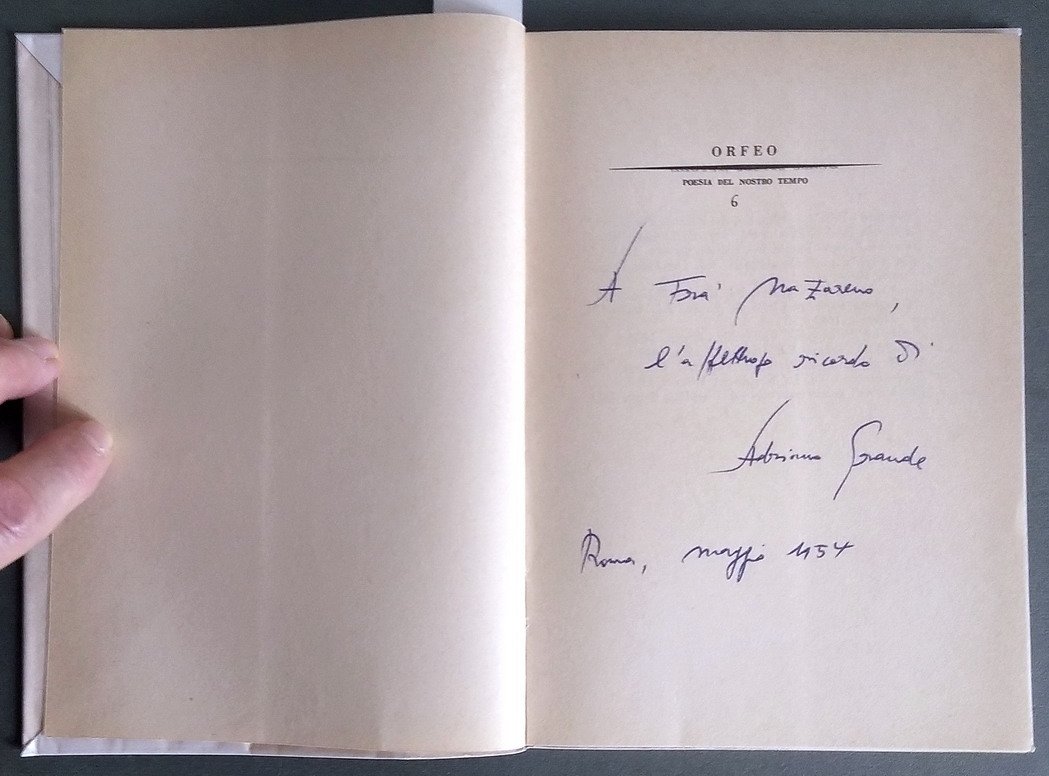 ORFEO
POESIA DEL NOSTRO TEMPO
6
A Fra' Nazareno,
l'affettuoso ricordo di
Adriano Grande
Roma, maggio 1954